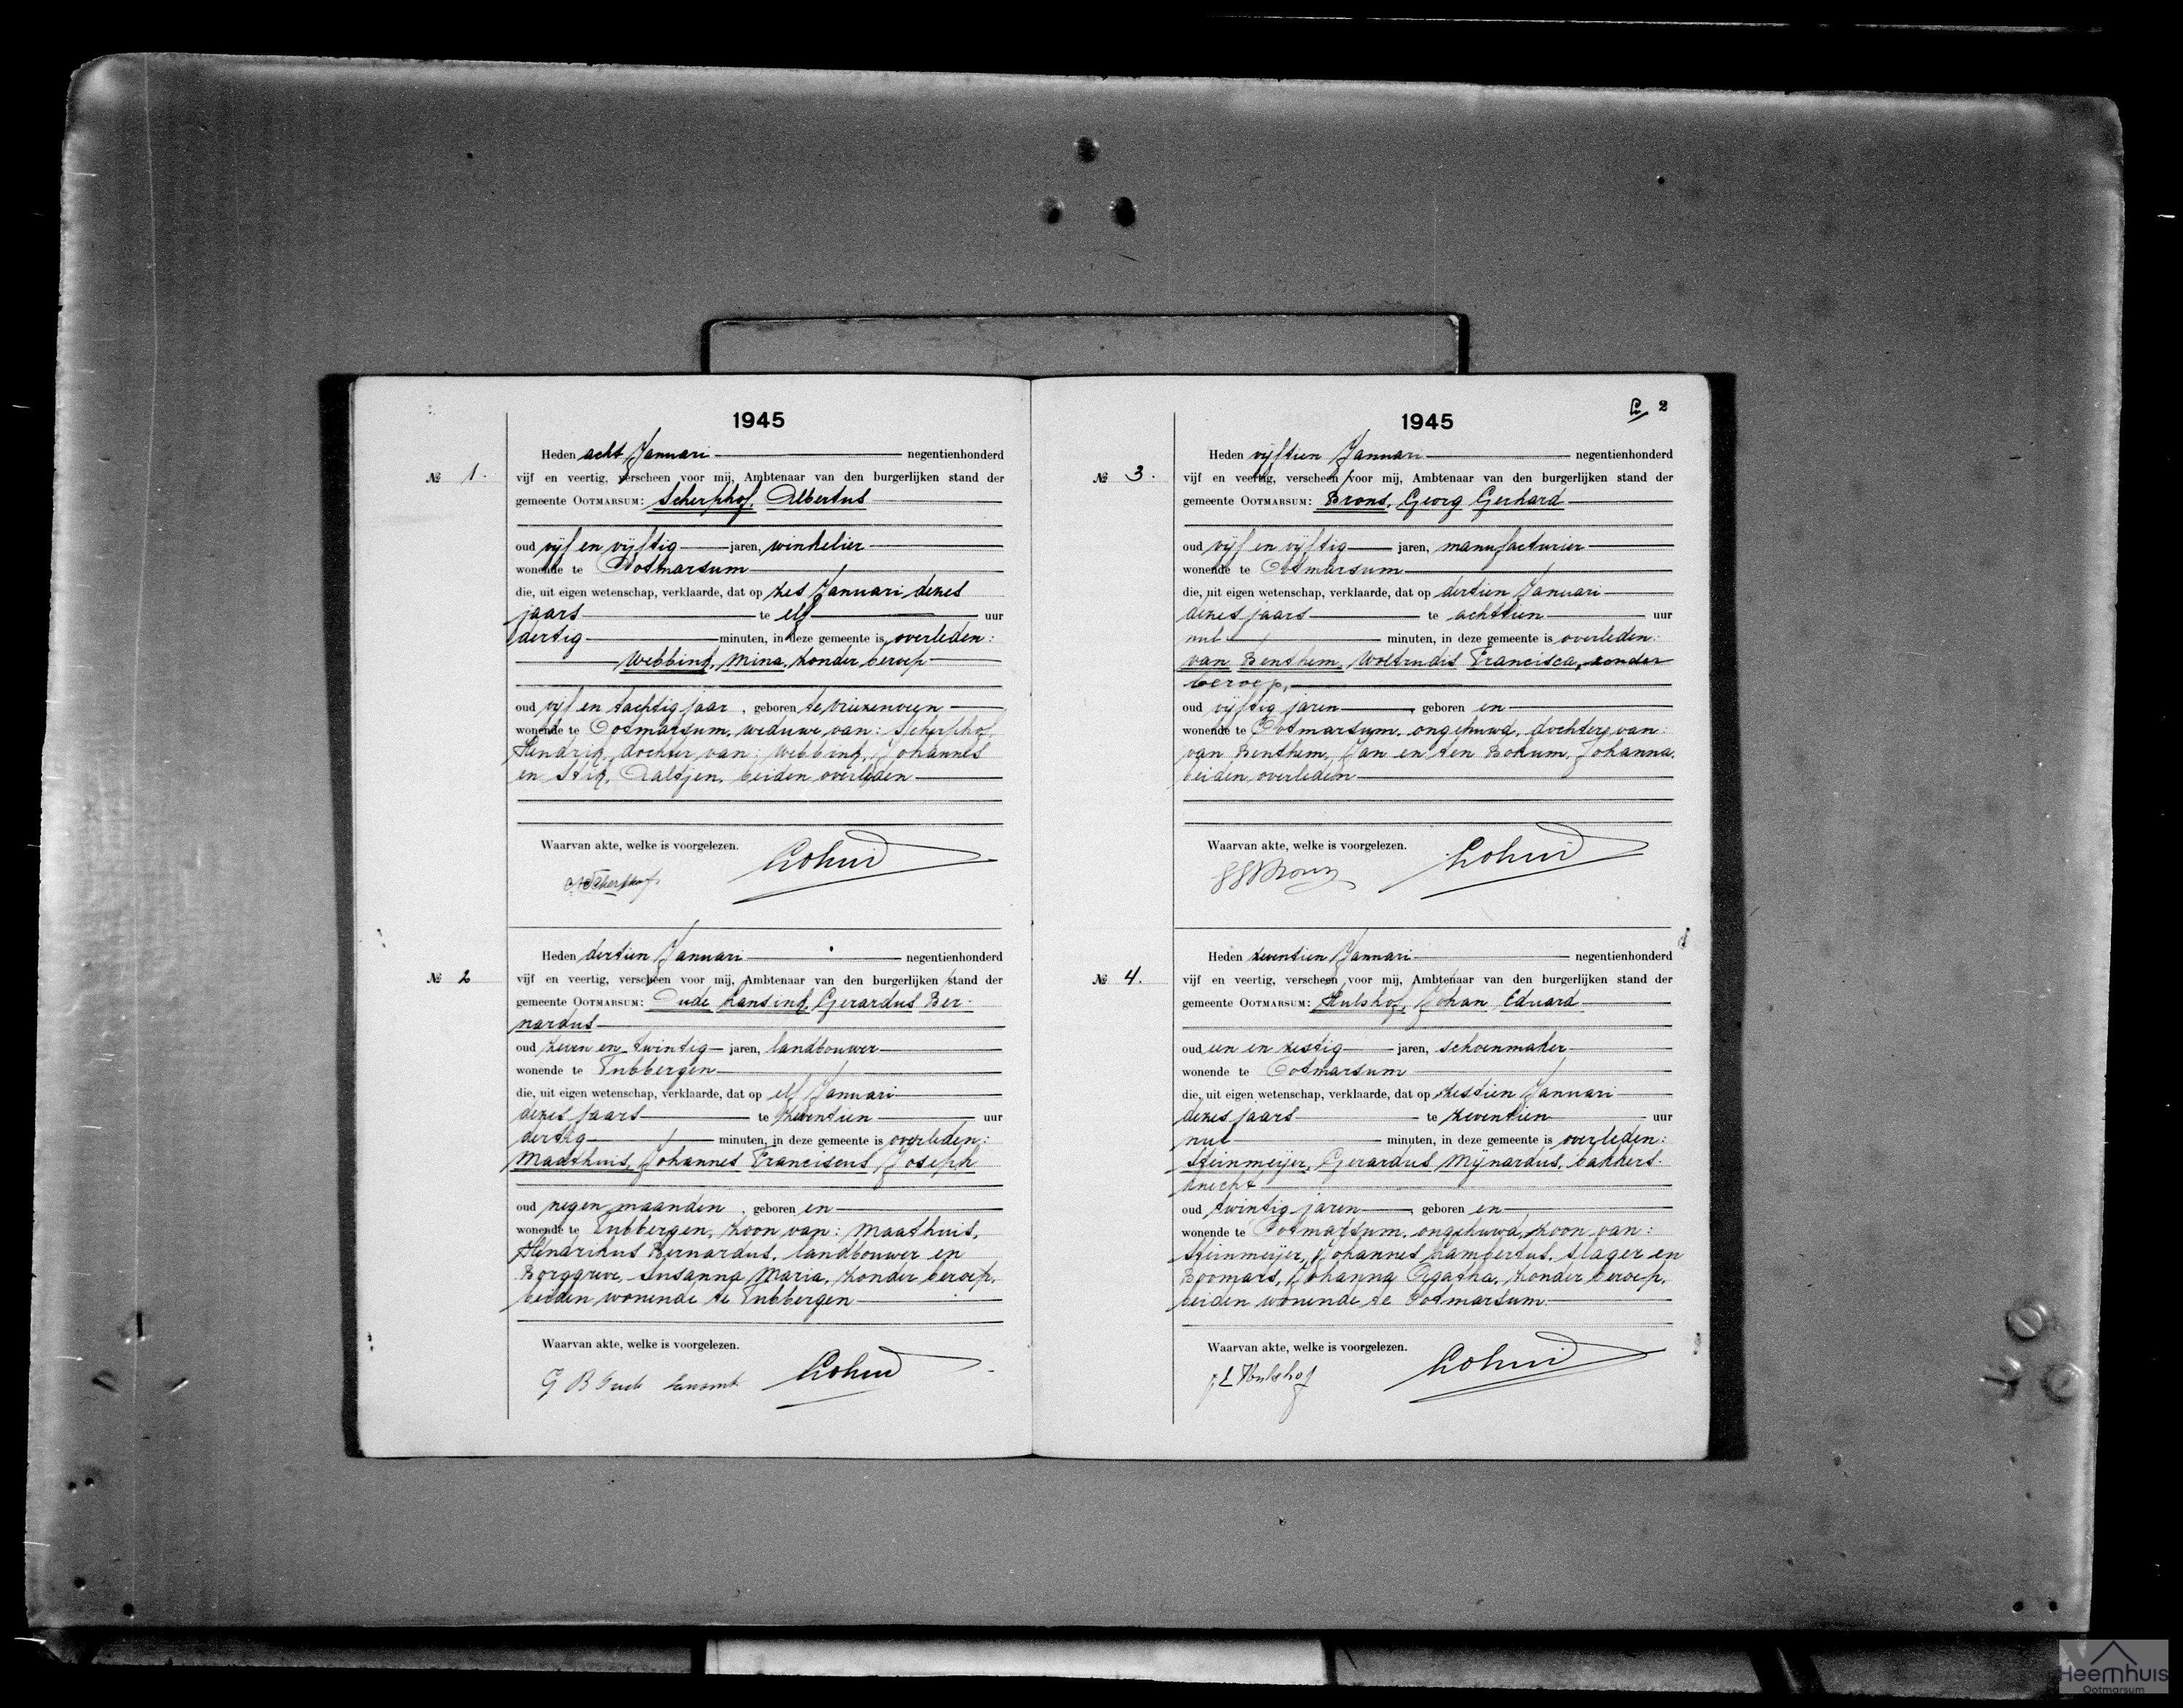 1945
Heden acht Januari negentienhonderd
№ 1. vijf en veertig, verscheen voor mij, Ambtenaar van den burgerlijken stand der
gemeente OOTMARSUM: Scherphof, Albertus
oud vijf en vijftig jaren, winkelier
wonende te Ootmarsum
die, uit eigen wetenschap, verklaarde, dat op zes Januari dezes
jaars te elf uur
dertig minuten, in deze gemeente is overleden:
Webbink, Mina, zonder beroep
oud vijf en tachtig jaar, geboren te Vriezenveen
wonende te Ootmarsum, weduwe van: Scherphof,
Hendrik, dochter van: Webbink, Johannes
en Stik, Aaltjen, beiden overleden
Waarvan akte, welke is voorgelezen.
Scherphof
Heden dertien Januari negentienhonderd
№ 2 vijf en veertig, verscheen voor mij, Ambtenaar van den burgerlijken stand der
gemeente OOTMARSUM: Oude Lansink, Gerardus Ber-
nardus
oud zeven en twintig jaren, landbouwer
wonende te Tubbergen
die, uit eigen wetenschap, verklaarde, dat op elf Januari
dezes jaars te zeventien uur
dertig minuten, in deze gemeente is overleden:
Maathuis, Johannes Franciscus Joseph
oud negen maanden, geboren en
wonende te Tubbergen, zoon van: Maathuis,
Hendrikus Bernardus, landbouwer en
Borggreve, Susanna Maria, zonder beroep,
beiden wonende te Tubbergen
Waarvan akte, welke is voorgelezen.
G B Oude Lansink
2
1945
Heden vijftien Januari negentienhonderd
№ 3. vijf en veertig, verscheen voor mij, Ambtenaar van den burgerlijken stand der
gemeente OOTMARSUM: Brons, Georg Gerhard
oud vijf en vijftig jaren, manufacturier
wonende te Ootmarsum
die, uit eigen wetenschap, verklaarde, dat op dertien Januari
dezes jaars te achttien uur
nul minuten, in deze gemeente is overleden:
van Benthem, Woltrudis Francisca, zonder
beroep,
oud vijftig jaren, geboren en
wonende te Ootmarsum, ongehuwd, dochter van:
van Benthem, Jan en ten Bokum, Johanna,
beiden overleden
Waarvan akte, welke is voorgelezen.
GG Brons
Heden zeventien Januari negentienhonderd
№ 4. vijf en veertig, verscheen voor mij, Ambtenaar van den burgerlijken stand der
gemeente OOTMARSUM: Hulshof, Johan Eduard
oud een en zestig jaren, schoenmaker
wonende te Ootmarsum
die, uit eigen wetenschap, verklaarde, dat op zestien Januari
dezes jaars te zeventien uur
nul minuten, in deze gemeente is overleden:
Steinmeijer, Gerardus Mijnardus, bakkers-
knecht
oud twintig jaren, geboren en
wonende te Ootmarsum, ongehuwd, zoon van:
Steinmeijer, Johannes Lambertus, slager en
Boomars, Johanna Agatha, zonder beroep,
beiden wonende te Ootmarsum.
Waarvan akte, welke is voorgelezen.
J E Hulshof
Heemhuis
Ootmarsum